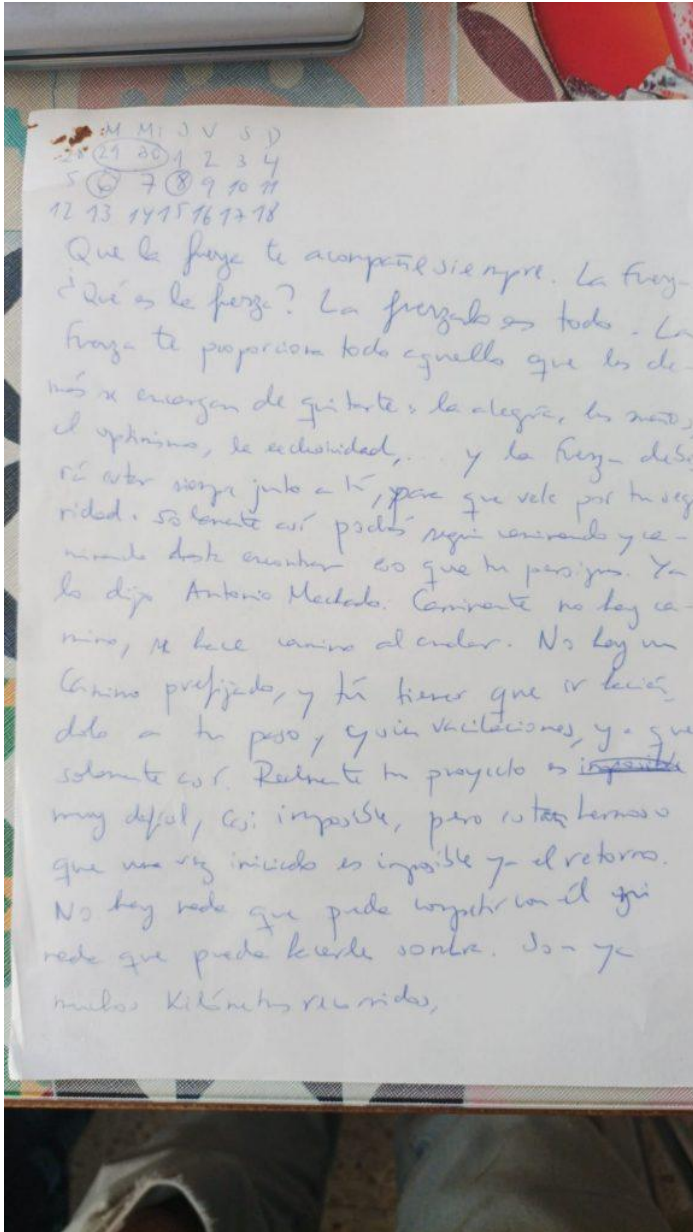 M Mi J V S D
28 29 30 1 2 3 4
5 6 7 8 9 10 11
12 13 14 15 16 17 18
Que la fuerza te acompañe siempre. La Fuerza
¿Qué es la fuerza? La fuerza lo es todo. La
Fuerza te proporciona todo aquello que los de-
más se encargan de quitarte: la alegría, los sueños,
el optimismo, la ... y la Fuerza debe
rá estar siempre junto a ti, para que vele por tu segu
ridad. Solamente así podrás seguir caminando y ca-
minando hasta encontrar eso que tu persigues. Ya
lo dijo Antonio Machado. Caminante no hay ca-
mino, se hace camino al andar. No hay un
Camino prefijado, y tú tienes que ir hacién
dolo a tu paso, y sin vacilaciones, ya que
solamente así. Realmente tu proyecto es imposible
muy difícil, casi imposible, pero es tan hermoso
que una vez iniciado es imposible ya el retorno.
No hay nada que pueda competir con él y ni
nada que pueda hacerle sombra. Son ya
muchos Kilómetros recorridos,